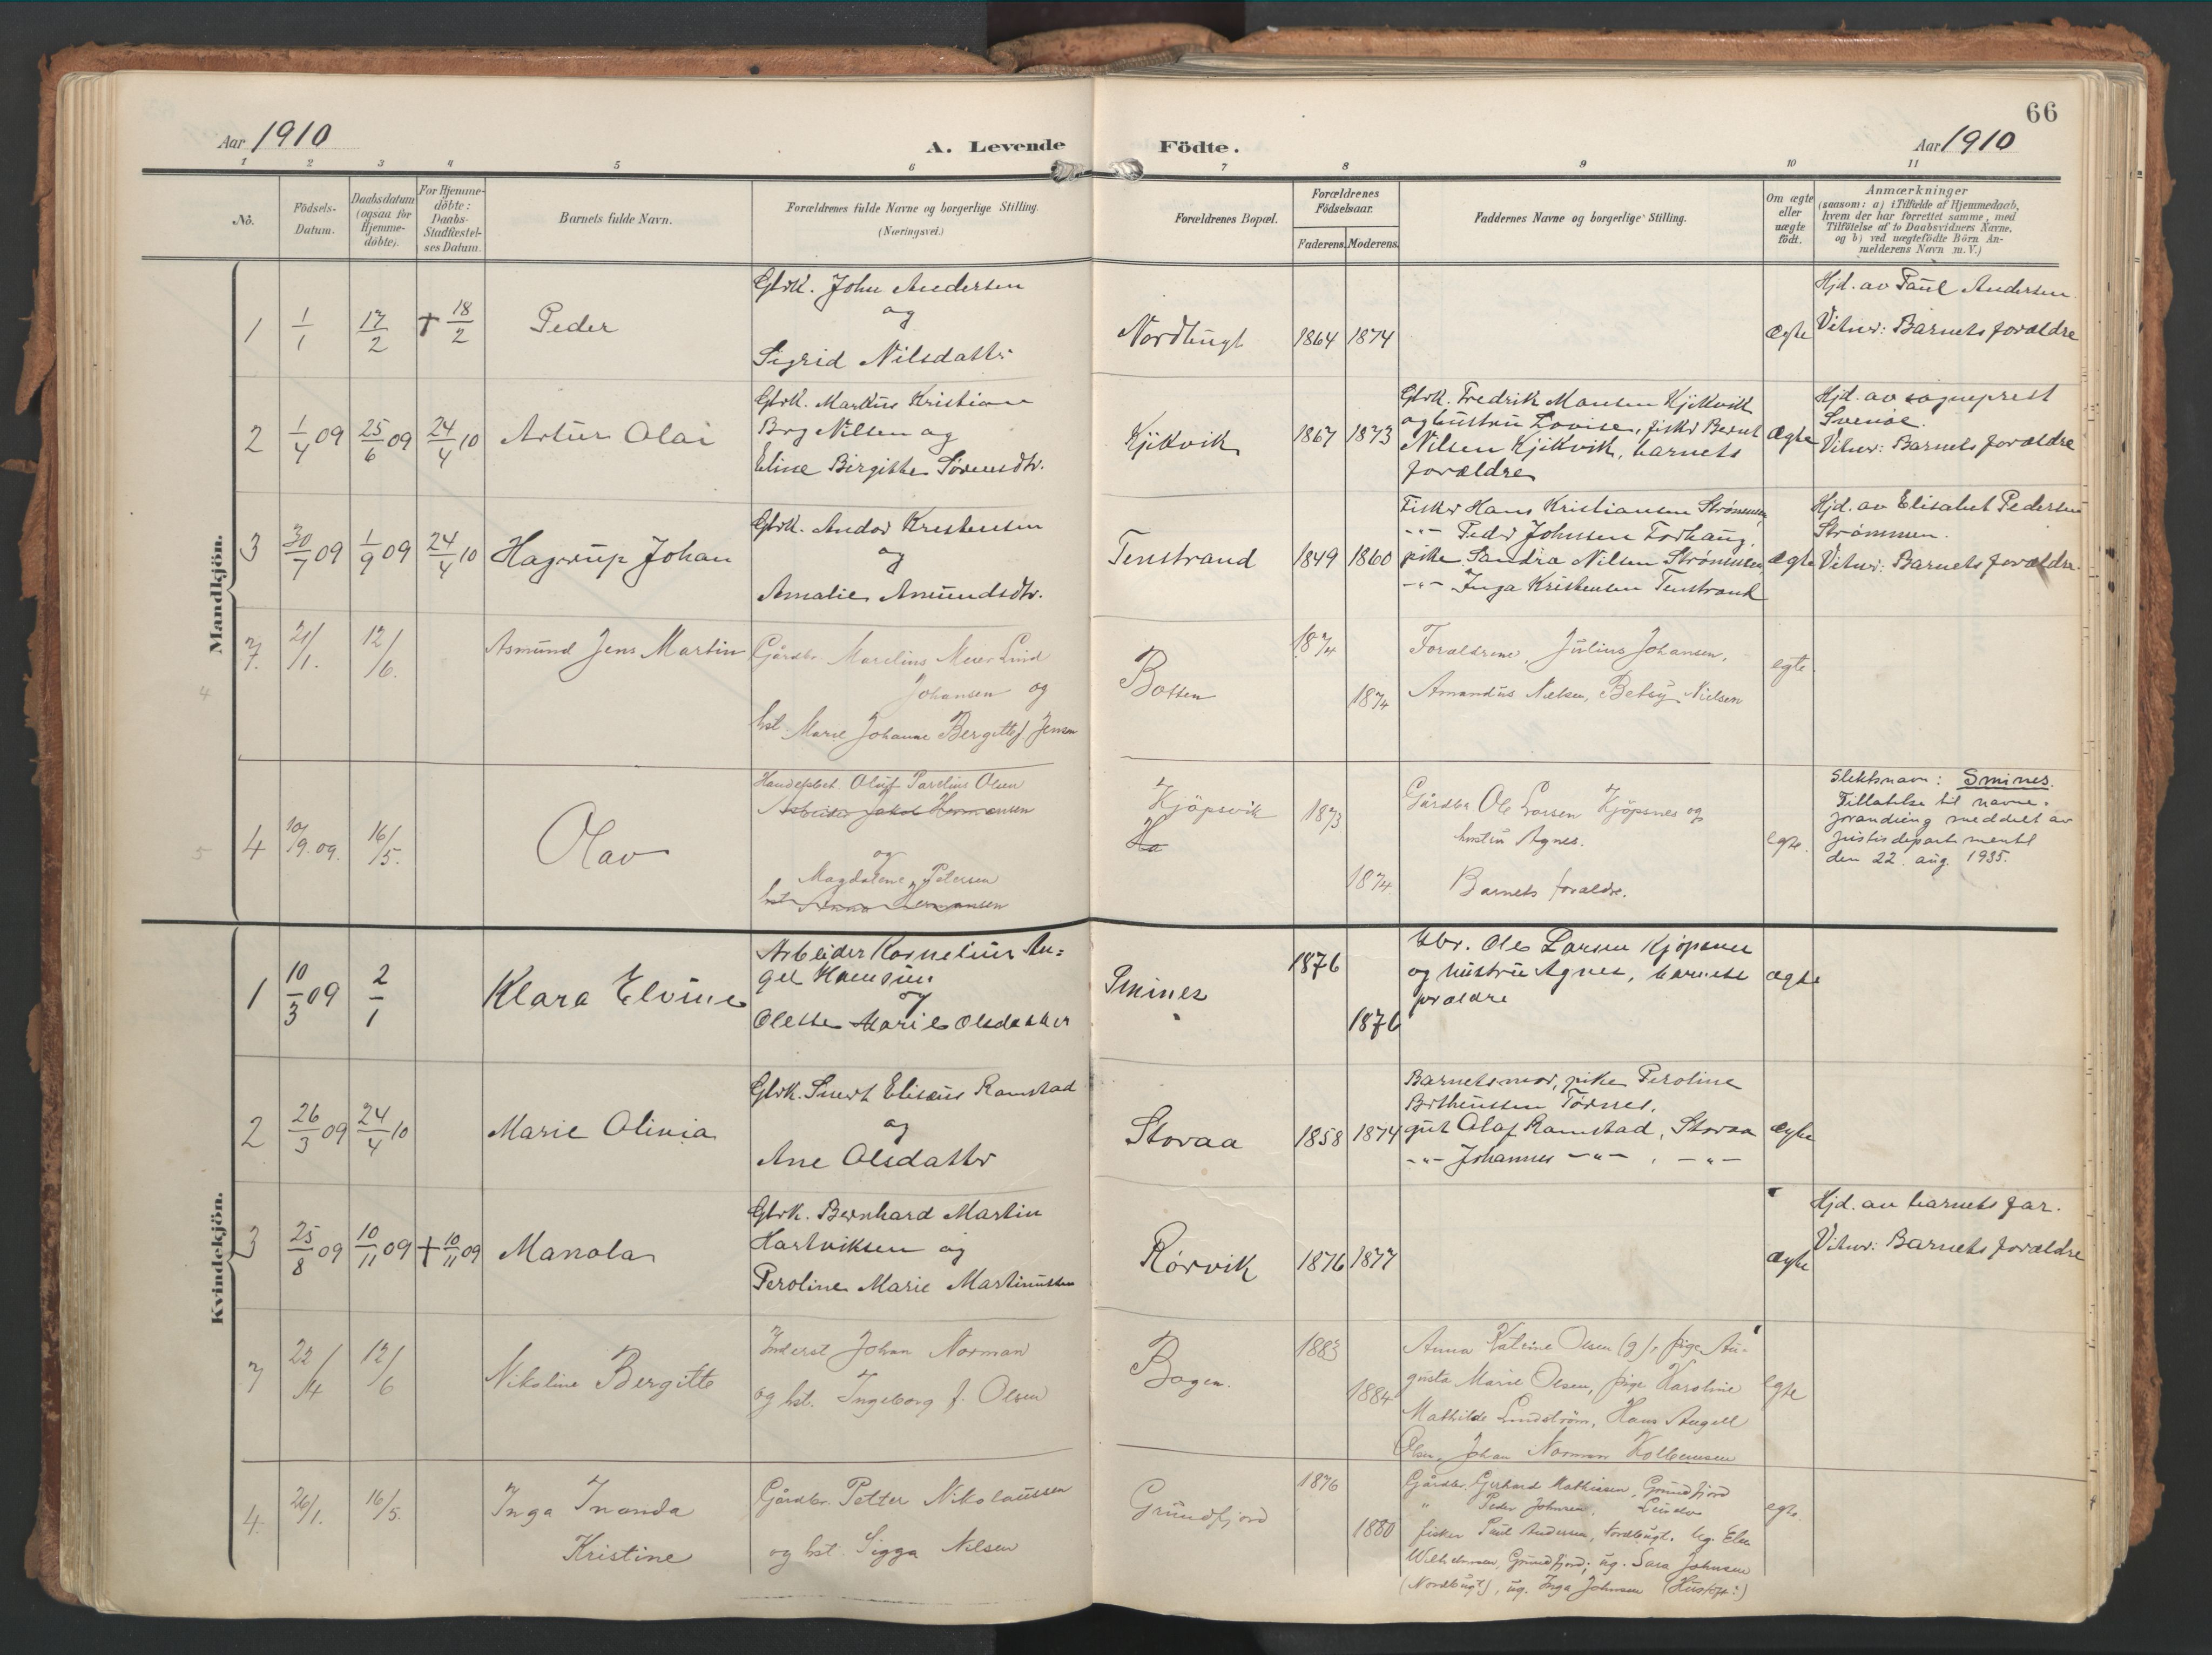 66
Aar 1910
A. Levende Födte.
Aar 1910
1 2 3 4 5 6 7 8 9 10 11
No.
Födsels-
Datum.
Daabsdatum
(ogsaa for
Hjemme-
döbte).
For Hjemme-
döbte:
Daabs-
Stadfæstel-
ses Datum.
Barnets fulde Navn.
Forældrenes fulde Navne og borgerlige Stilling.
(Næringsvei.)
Forældrenes Bopæl.
Forældrenes
Födselsaar.
Faderens. Moderens.
Faddernes Navne og borgerlige Stilling.
Om ægte
eller
uægte
födt.
Anmærkninger
(saasom: a) i Tilfælde af Hjemmedaab,
hvem der har forrettet samme, med
Tilföielse af to Daabsvidners Navne,
og b) ved uægtefödte Börn An-
melderens Navn m. V.)
Mandkjön.
1
1/1
17/2
+ 18/2
Peder
Gbrk. John Andersen
og
Sigrid Nilsdatter
Nordbugt
1864 1874
ægte
Hjd. av Paul Andersen
Vitner: Barnets forældre
2
1/4 09
25/6 09
24/4 10
Artur Olai
Gbrk. Markus Kristian
Brg Nilsen og
Eline Birgitte Sørensdtr.
Kjikvik
1867 1873
Gbrk. Fredrik Monsen Kjikvik
og hustru Lovise, fisker Bernt
Nilsen Kjikvik, barnets
forældre
ægte
Hjd. av sogneprest
Svenøe.
Vitner: Barnets forældre
3
30/7 09
1/9 09
24/4 10
Hagerup Johan
Gbrk. Andor Kristensen
og
Amalie Amundsdtr.
Tenstrand
1849 1860
Fisker Hans Kristiansen Strømmen
-"- Peder Johnsen Forhaug.
pike Sandra Nilsen Strømmen
-"- Inga Kristensen Tenstrand
ægte
Hjd. av Elisabet Pedersen
Strømmen.
Vitner: Barnets forældre.
4
7.
21/1.
12/6.
Asmund Jens Martin
Gårdbr. Marelius Meier Lind
Johansen og
hst. Marie Johanne Bergitte f. Jensen
Botten
1874
1874
Forældrene, Julius Johansen,
Amandus Nielsen, Betsy Nielsen
egte
5
4
10/9.09.
16/5.
Olav
Handelsbet. Oluf Parelius Olsen
Arbeider Jakob Hermansen
og
Magdalene Petersen
Kjöpsvik
Ha
1873
1874
Gårdbr Ole Larsen Kjöpsnes og
hustru Agnes.
Barnets forældre.
egte.
Slektsnavn: Smines.
Tillatelse til navne-
forandring meddelt av
Justisdepartementet
den 22. aug. 1935.
Kvindekjön.
1
10/3 09
2/1
Klara Elvine
Arbeider Kornelius An=
gel Hamsun
og
Olette Marie Olsdatter
Smines
1876
1876
Gbr. Ole Larsen Kjöpsnes
og hustru Agnes, barnets
forældre
ægte
2
26/3 09
24/4 10
Marie Olivia
Gbrk. Sivert Elisæus Ramstad
og
Ane Olsdatter
Storaa
1858 1874
Barnets mor, pike Peroline
Berthinssen Tørnes.
gut Olaf Ramstad, Storaa
-"- Johannes -"- , -"-
ægte
3
25/8 09
10/11 09
+ 10/11 09
Manola
Gbrk. Bernhard Martin
Hartviksen og
Peroline Marie Martinussen
Rørvik
1876 1877
ægte
Hjd. av barnets far.
Vitner: Barnets forældre
7
22/4
12/6
Nikoline Bergitte
Inderst Johan Norman
og hst. Ingeborg f. Olsen
Bogen.
1883
1884
Anna Katrine Olsen (g), pige Au-
gusta Marie Olsen, pige Karoline
Mathilde Lindström, Hans Angell
Olsen, Johan Norman Kolbensen
egte
4.
26/1.
16/5.
Inga Inanda
Kristine
Gårdbr. Petter Nikolaussen
og hst. Sigga Nilsen
Grundfjord
1876
1880
Gårdbr. Gerhard Mathisen, Grundfjord
" Peder Johnsen,
fisker Paul Andersen, Nordbugt. Ug. Elen
Wilhelmsen, Grundfjord; ug. Sara Johnsen
(Nordbugt), ug. Inga Johnsen
egte.